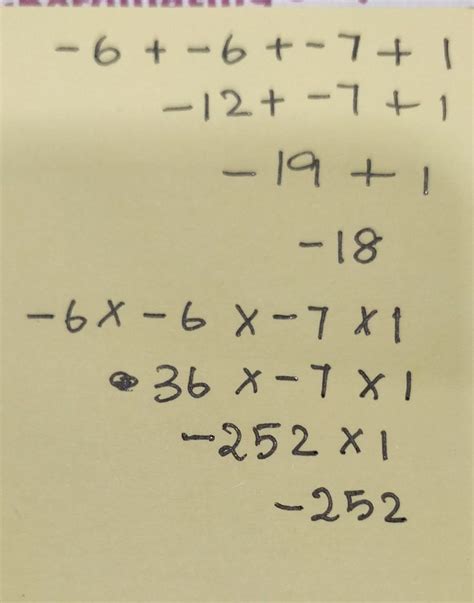 -6 + -6 + -7 + 1
-12 + -7 + 1
-19 + 1
-18
-6 x -6 x -7 x 1
36 x -7 x 1
-252 x 1
-252